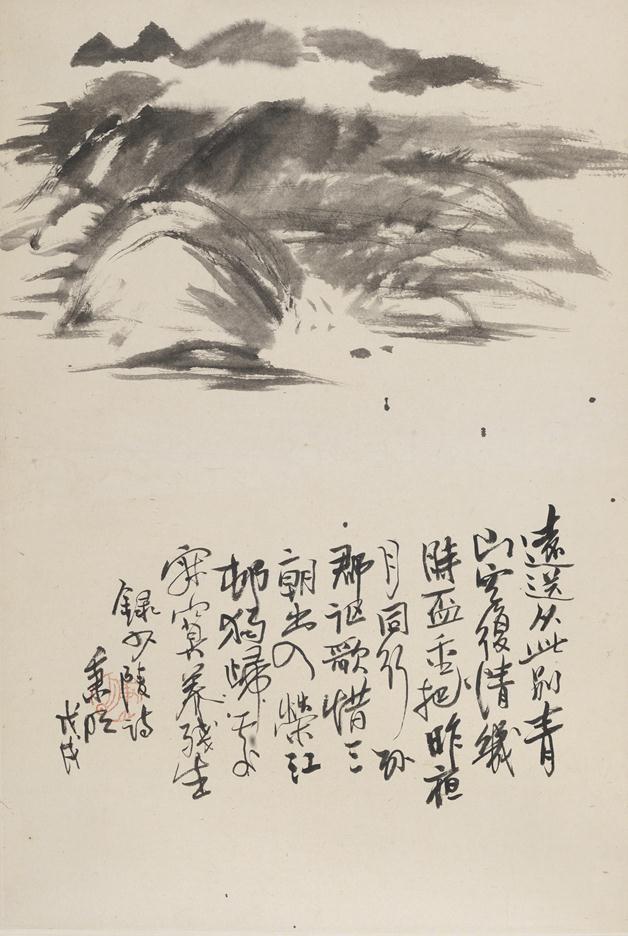 遠送从此別青
山空復情幾
時盃重把昨夜
月同行列
郡謳歌惜三
朝出入榮江
邨獨歸處
寂寞養殘生
錄少陵詩
秉明
戊戌